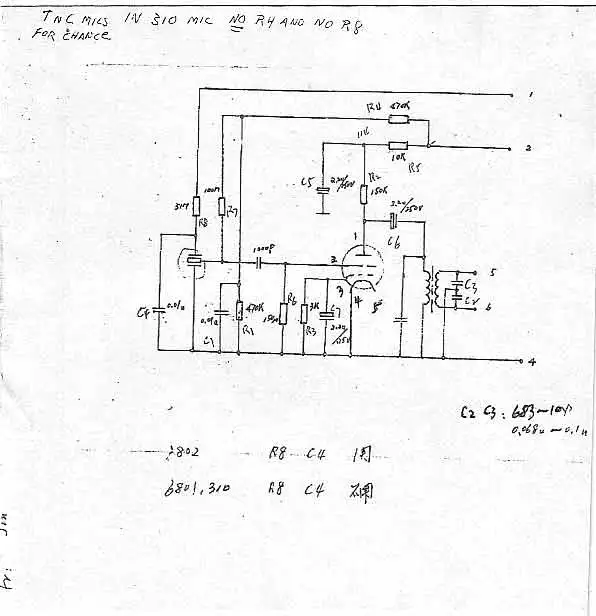 TNC MICS IN 310 MIC NO R4 AND NO R8
FOR CHANCE
1
R4 470K
2
10K
R5
C5
220/250V
R2
150K
31M
R8
100M
R7
2.20/250V
C6
1
1000P
2
3
4
5
5
C3
C2
6
C4
0.01u
0.01u
C1
470K
R1
R6
3K
R3
C7
4
C2 C3: 683~104
0.068u ~ 0.1u
R8 C4
6801, 310 R8 C4